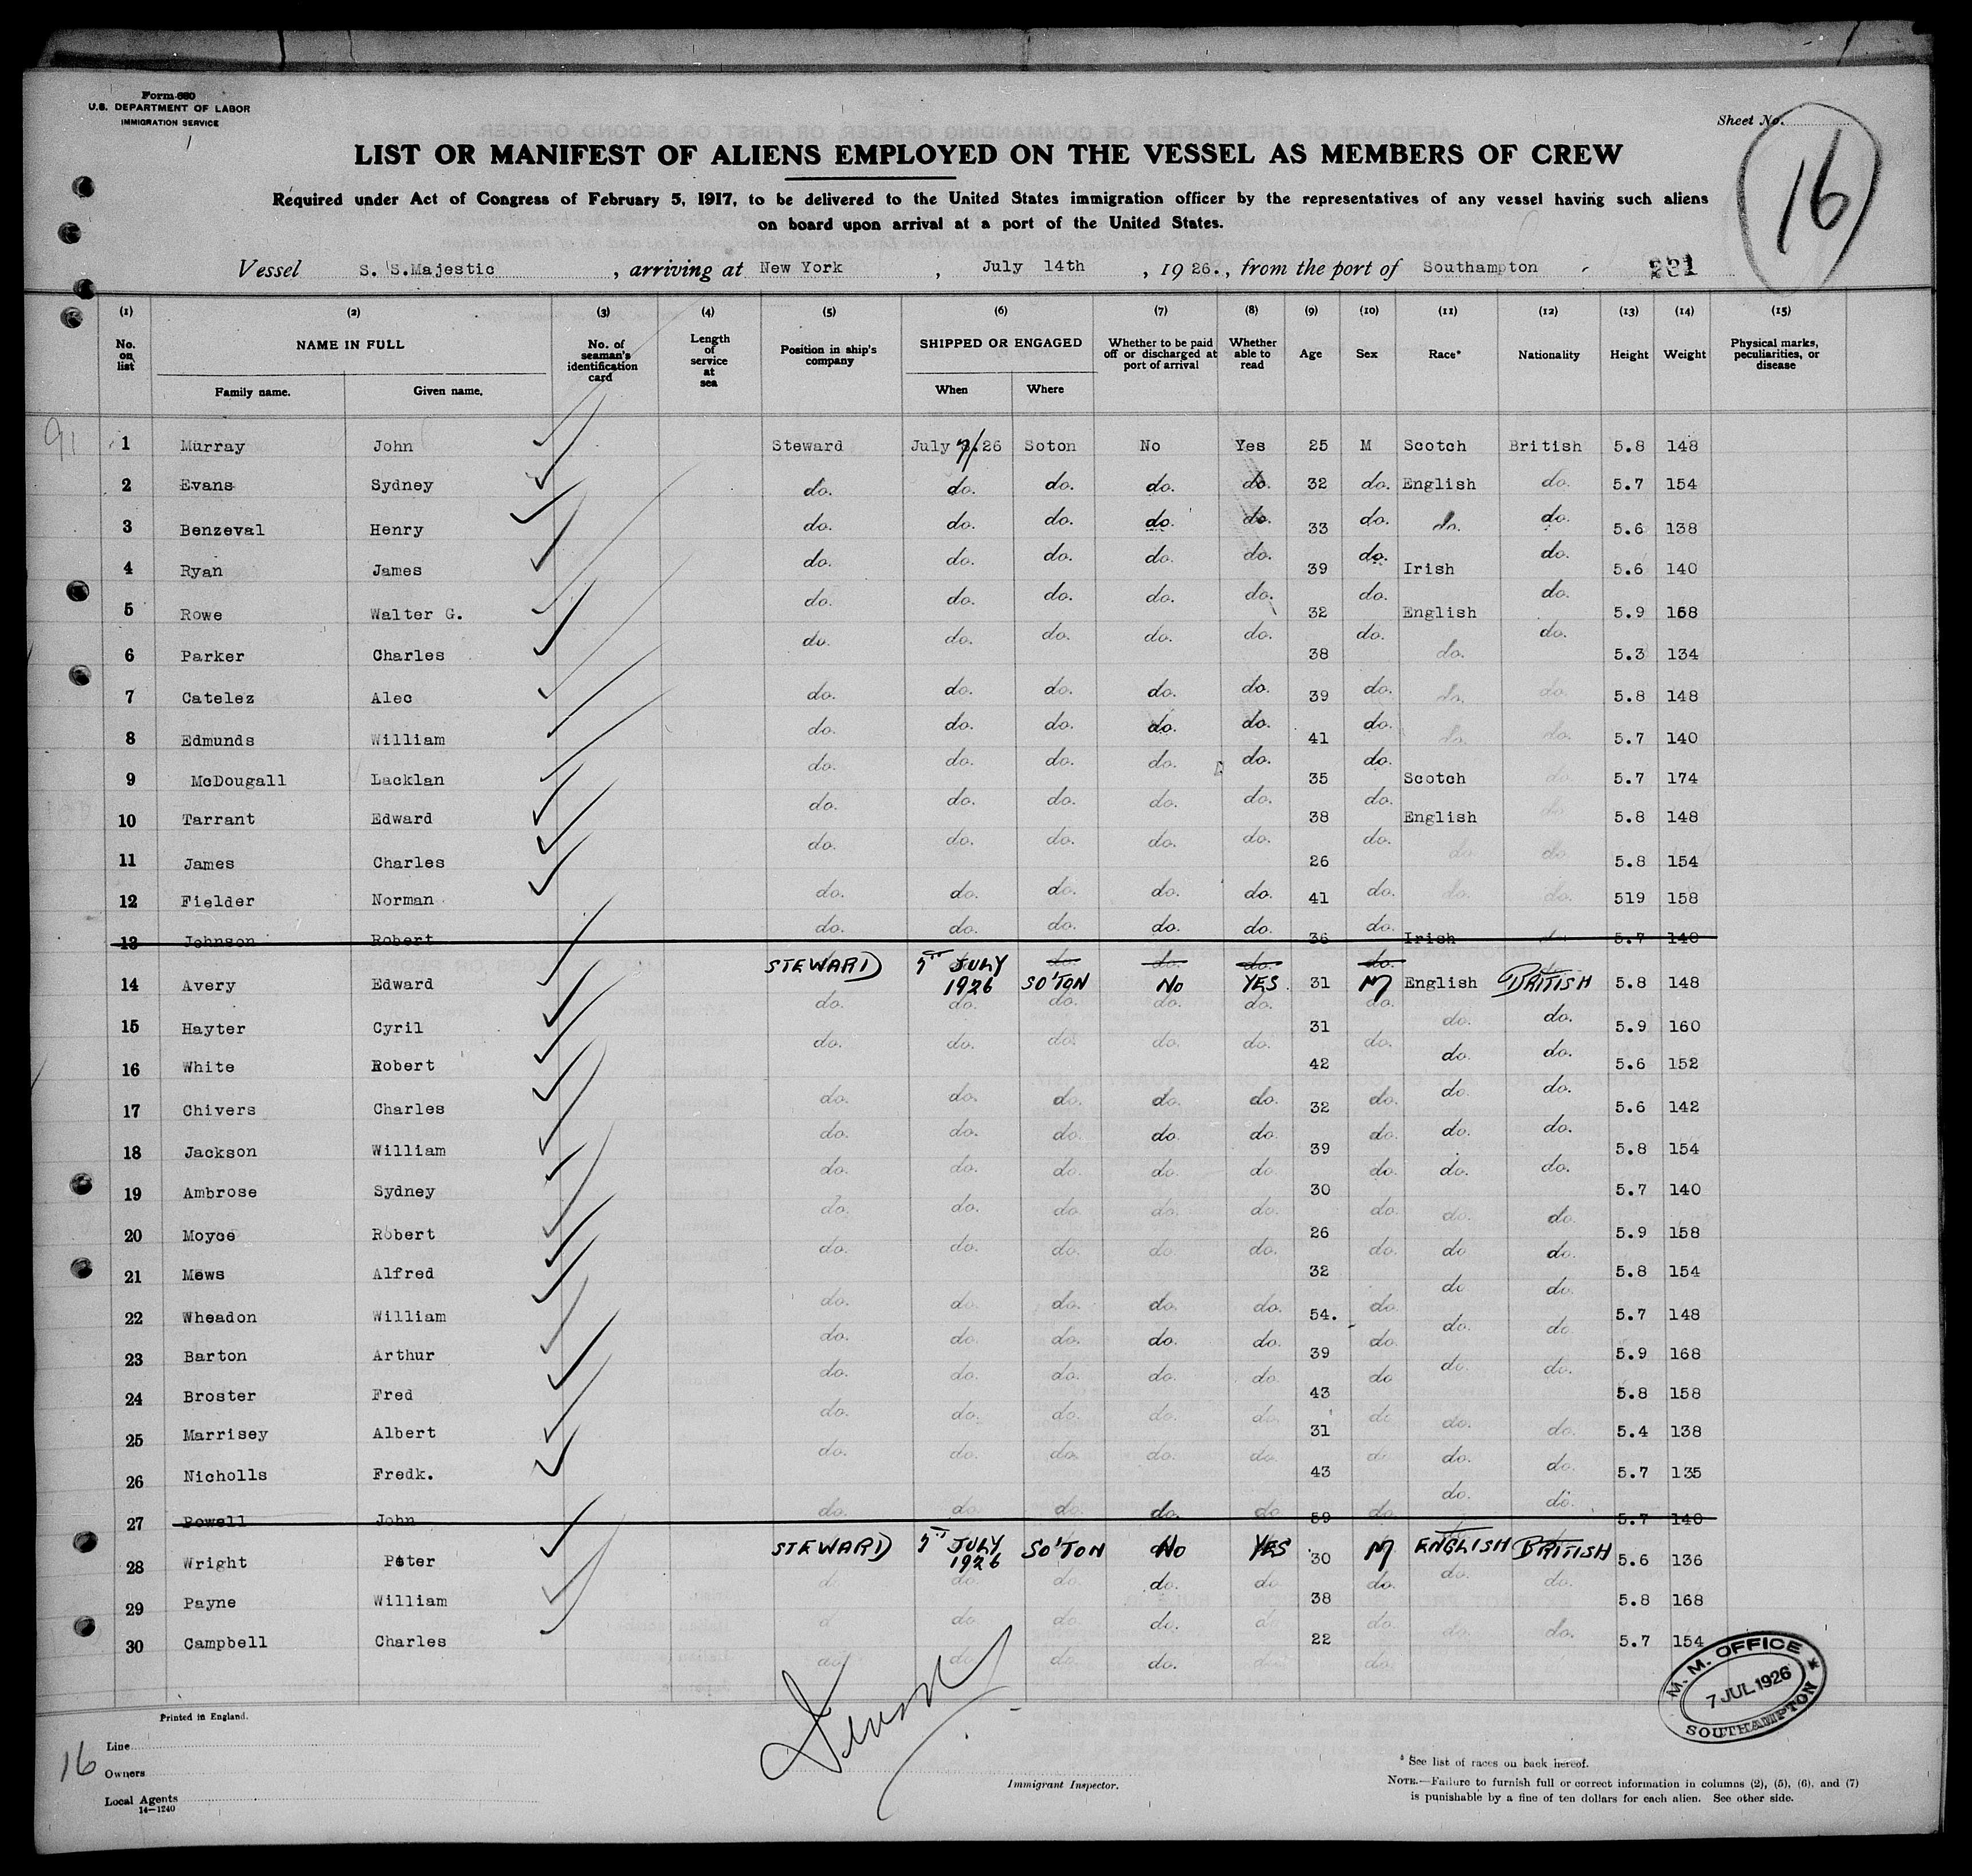 Form 680
U.S. DEPARTMENT OF LABOR
IMMIGRATION SERVICE
Sheet No.
16
LIST OR MANIFEST OF ALIENS EMPLOYED ON THE VESSEL AS MEMBERS OF CREW
Required under Act of Congress of February 5, 1917, to be delivered to the United States immigration officer by the representatives of any vessel having such aliens
on board upon arrival at a port of the United States.
Vessel S. S.Majestic , arriving at New York , July 14th , 1926., from the port of Southampton
(1) (2) (3) (4) (5) (6) (7) (8) (9) (10) (11) (12) (13) (14) (15)
No. on list NAME IN FULL Family name. Given name. No. of seaman's identification card Length of service at sea Position in ship's company SHIPPED OR ENGAGED When Where Whether to be paid off or discharged at port of arrival Whether able to read Age Sex Race* Nationality Height Weight Physical marks, peculiarities, or disease
91
1 Murray John Steward July 7/26 Soton No Yes 25 M Scotch British 5.8 148
2 Evans Sydney do. do. do. do. do. 32 do. English do. 5.7 154
3 Benzeval Henry do. do. do. do. do. 33 do. do. do. 5.6 138
4 Ryan James do. do. do. do. do. 39 do. Irish do. 5.6 140
5 Rowe Walter G. do. do. do. do. do. 32 do. English do. 5.9 168
6 Parker Charles do. do. do. do. do. 38 do. do. do. 5.3 134
7 Catelez Alec do. do. do. do. do. 39 do. do. do. 5.8 148
8 Edmunds William do. do. do. do. do. 41 do. do. do. 5.7 140
9 McDougall Lacklan do. do. do. do. do. 35 do. Scotch do. 5.7 174
10 Tarrant Edward do. do. do. do. do. 38 do. English do. 5.8 148
11 James Charles do. do. do. do. do. 26 do. do. do. 5.8 154
12 Fielder Norman do. do. do. do. do. 41 do. do. do. 519 158
13 Johnson Robert do. do. do. do. do. 36 do. Irish do. 5.7 140
14 Avery Edward STEWARD 7TH JULY 1926 SO'TON NO YES 31 M English BRITISH 5.8 148
15 Hayter Cyril do. do. do. do. do. 31 do. do. do. 5.9 160
16 White Robert do. do. do. do. do. 42 do. do. do. 5.6 152
17 Chivers Charles do. do. do. do. do. 32 do. do. do. 5.6 142
18 Jackson William do. do. do. do. do. 39 do. do. do. 5.8 154
19 Ambrose Sydney do. do. do. do. do 30 do. do. do. 5.7 140
20 Moyce Robert do. do. do. do. do. 26 do. do. do. 5.9 158
21 Mews Alfred do. do. do. do. do. 32 do. do do. 5.8 154
22 Wheadon William do. do. do. do. do. 54. do. do do. 5.7 148
23 Barton Arthur do. do. do. do. do. 39 do. do. do. 5.9 168
24 Broster Fred do. do. do. do. do. 43 do do. do. 5.8 158
25 Marrisey Albert do. do. do. do. do. 31 do do. do. 5.4 138
26 Nicholls Fredk. do. do. do. do. do. 43 do do. do. 5.7 135
27 Powell John do. do. do. do. do 59 do. do. do. 5.7 140
28 Wright Peter STEWARD 7TH JULY 1926 SO'TON No YES 30 M ENGLISH BRITISH 5.6 136
29 Payne William do. do. do. do. 38 do. do. do. 5.8 168
30 Campbell Charles do. do. do. 22 do. do. do. 5.7 154
M. M. OFFICE
7 JUL 1926
SOUTHAMPTON
Printed in England.
16
Line
Owners
Local Agents
14—1240
Immigrant Inspector.
* See list of races on back hereof.
NOTE.—Failure to furnish full or correct information in columns (2), (5), (6), and (7)
is punishable by a fine of ten dollars for each alien. See other side.